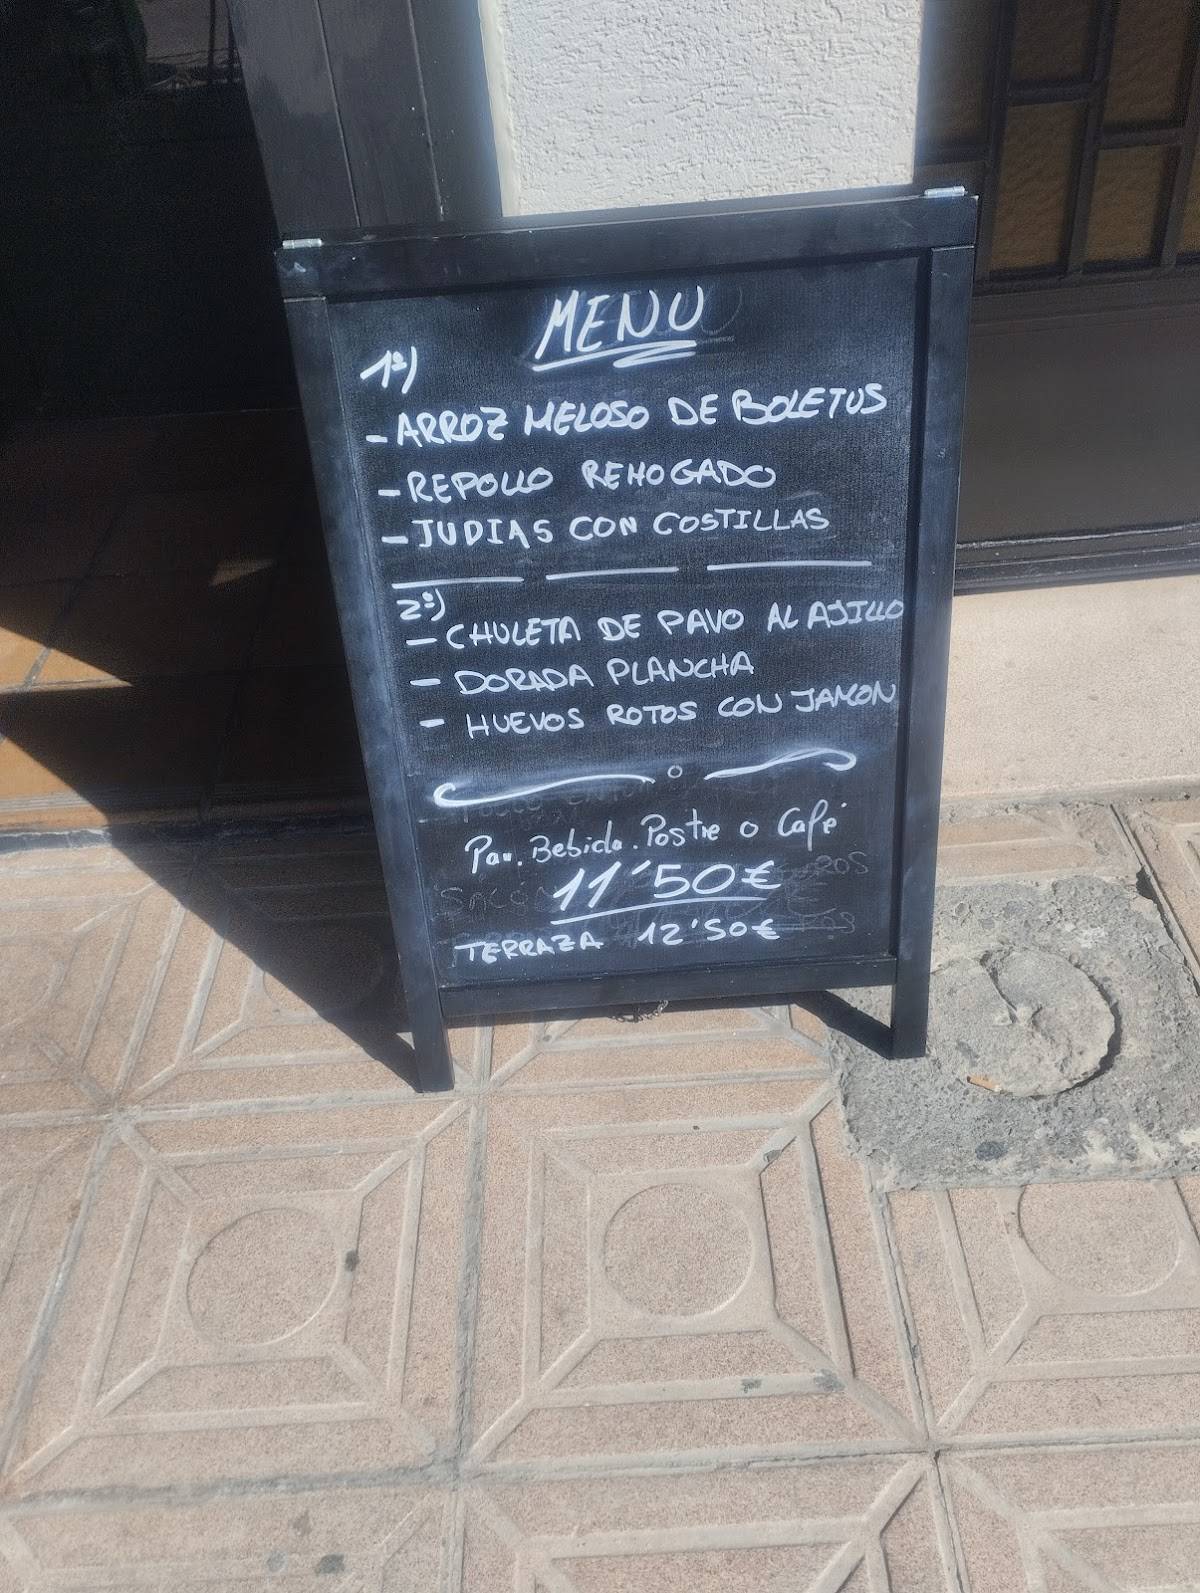 MENU
1º)
- ARROZ MELOSO DE BOLETUS
- REPOLLO REHOGADO
- JUDIAS CON COSTILLAS
2º)
- CHULETA DE PAVO AL AJILLO
- DORADA PLANCHA
- HUEVOS ROTOS CON JAMON
Pan. Bebida. Postre o Café
11'50€
TERRAZA 12'50€